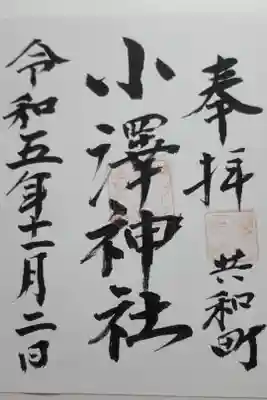 奉拝 共和町
小澤神社
令和五年十一月二日